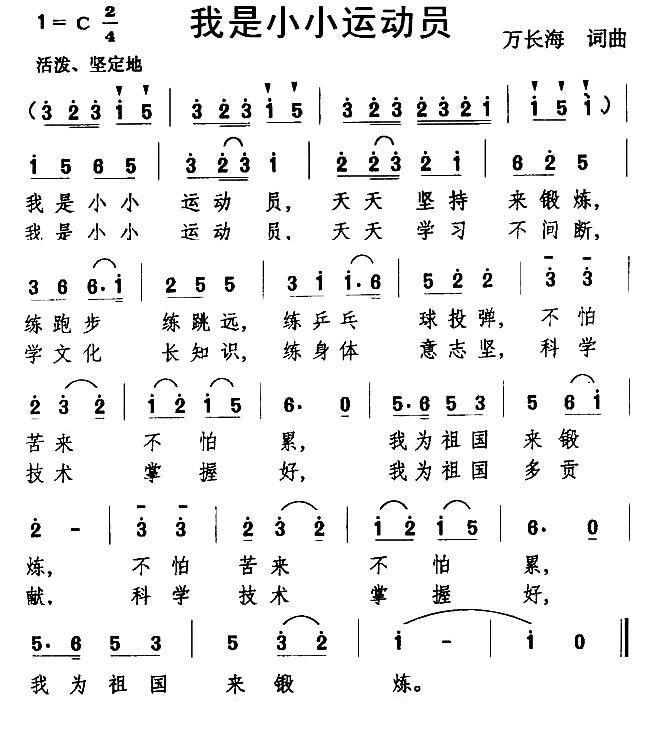 我是小小运动员
1=C 2/4
万长海 词曲
活泼、坚定地
(3̇ 2̇ 3̇ 1̇ 5 | 3̇ 2̇ 3̇ 1̇ 5 | 3̇ 2̇ 3̇ 2̇ 3̇ 2̇ 1̇ | 1̇ 5 1̇) |
1̇ 5 6 5 | 3̇ 2̇ 3̇ 1̇ | 2̇ 2̇ 3̇ 2̇ 1̇ | 6 2̇ 5 |
我是小小 运动员, 天天 坚持 来锻炼,
我是小小 运动员, 天天 学习 不间断,
3 6 6· 1̇ | 2 5 5 | 3 1̇ 1̇· 6 | 5 2̇ 2̇ | 3̇ 3̇ |
练跑步 练跳远, 练乒乓 球投弹, 不怕
学文化 长知识, 练身体 意志坚, 科学
2̇ 3̇ 2̇ | 1̇ 2̇ 1̇ 5 | 6· 0 | 5· 6 5 3 | 5 6 1̇ |
苦来 不怕 累, 我为祖国 来锻
技术 掌握 好, 我为祖国 多贡
2̇ - | 3̇ 3̇ | 2̇ 3̇ 2̇ | 1̇ 2̇ 1̇ 5 | 6· 0 |
炼, 不怕 苦来 不怕 累,
献, 科学 技术 掌握 好,
5· 6 5 3 | 5 3̇ 2̇ | 1̇ - | 1̇ 0 ‖
我为祖国 来锻 炼。